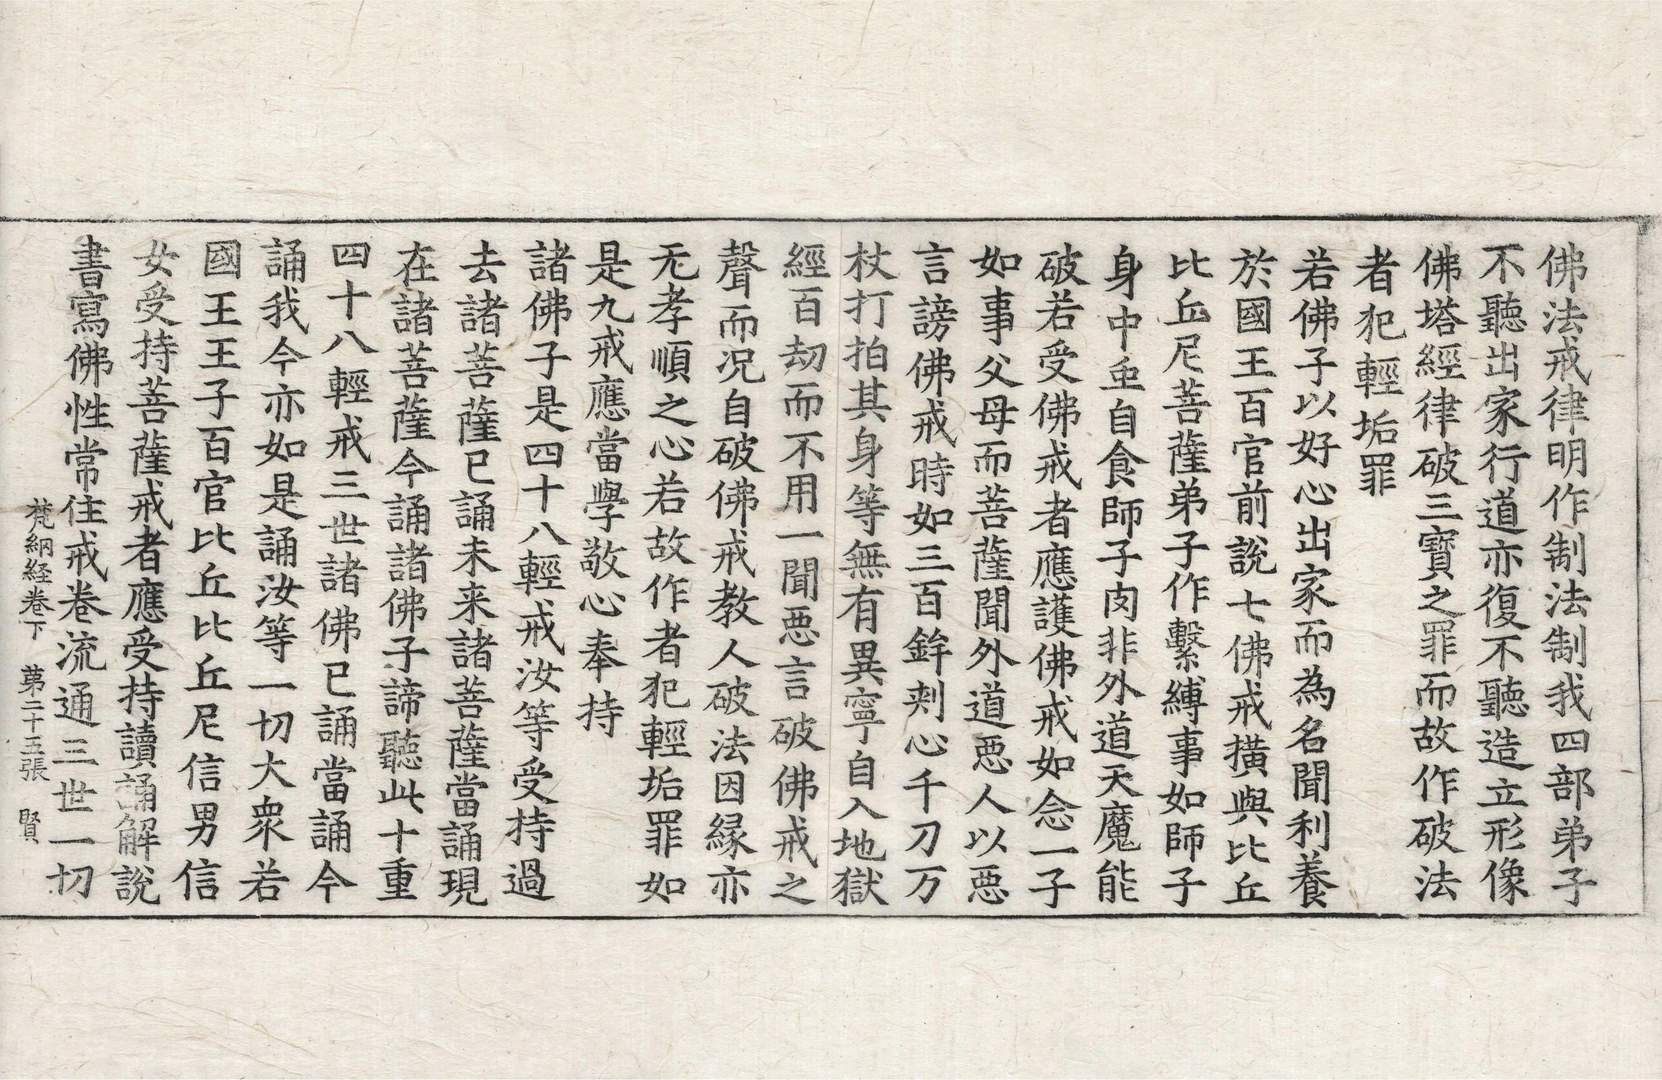 佛法戒律明作制法制我四部弟子
不聽出家行道亦復不聽造立形像
佛塔經律破三寶之罪而故作破法
者犯輕垢罪
若佛子以好心出家而為名聞利養
於國王百官前說七佛戒撗與比丘
比丘尼菩薩弟子作繫縛事如師子
身中虫自食師子肉非外道天魔能
破若受佛戒者應護佛戒如念一子
如事父母而菩薩聞外道惡人以惡
言謗佛戒時如三百鉾刾心千刀万
杖打拍其身等無有異寧自入地獄
經百劫而不用一聞惡言破佛戒之
聲而况自破佛戒教人破法因緣亦
无孝順之心若故作者犯輕垢罪如
是九戒應當學敬心奉持
諸佛子是四十八輕戒汝等受持過
去諸菩薩已誦未来諸菩薩當誦現
在諸菩薩今誦諸佛子諦聽此十重
四十八輕戒三世諸佛已誦當誦今
誦我今亦如是誦汝等一切大衆若
國王王子百官比丘比丘尼信男信
女受持菩薩戒者應受持讀誦解說
書寫佛性常住戒卷流通三世一切
梵網経卷下 苐二十五張 賢